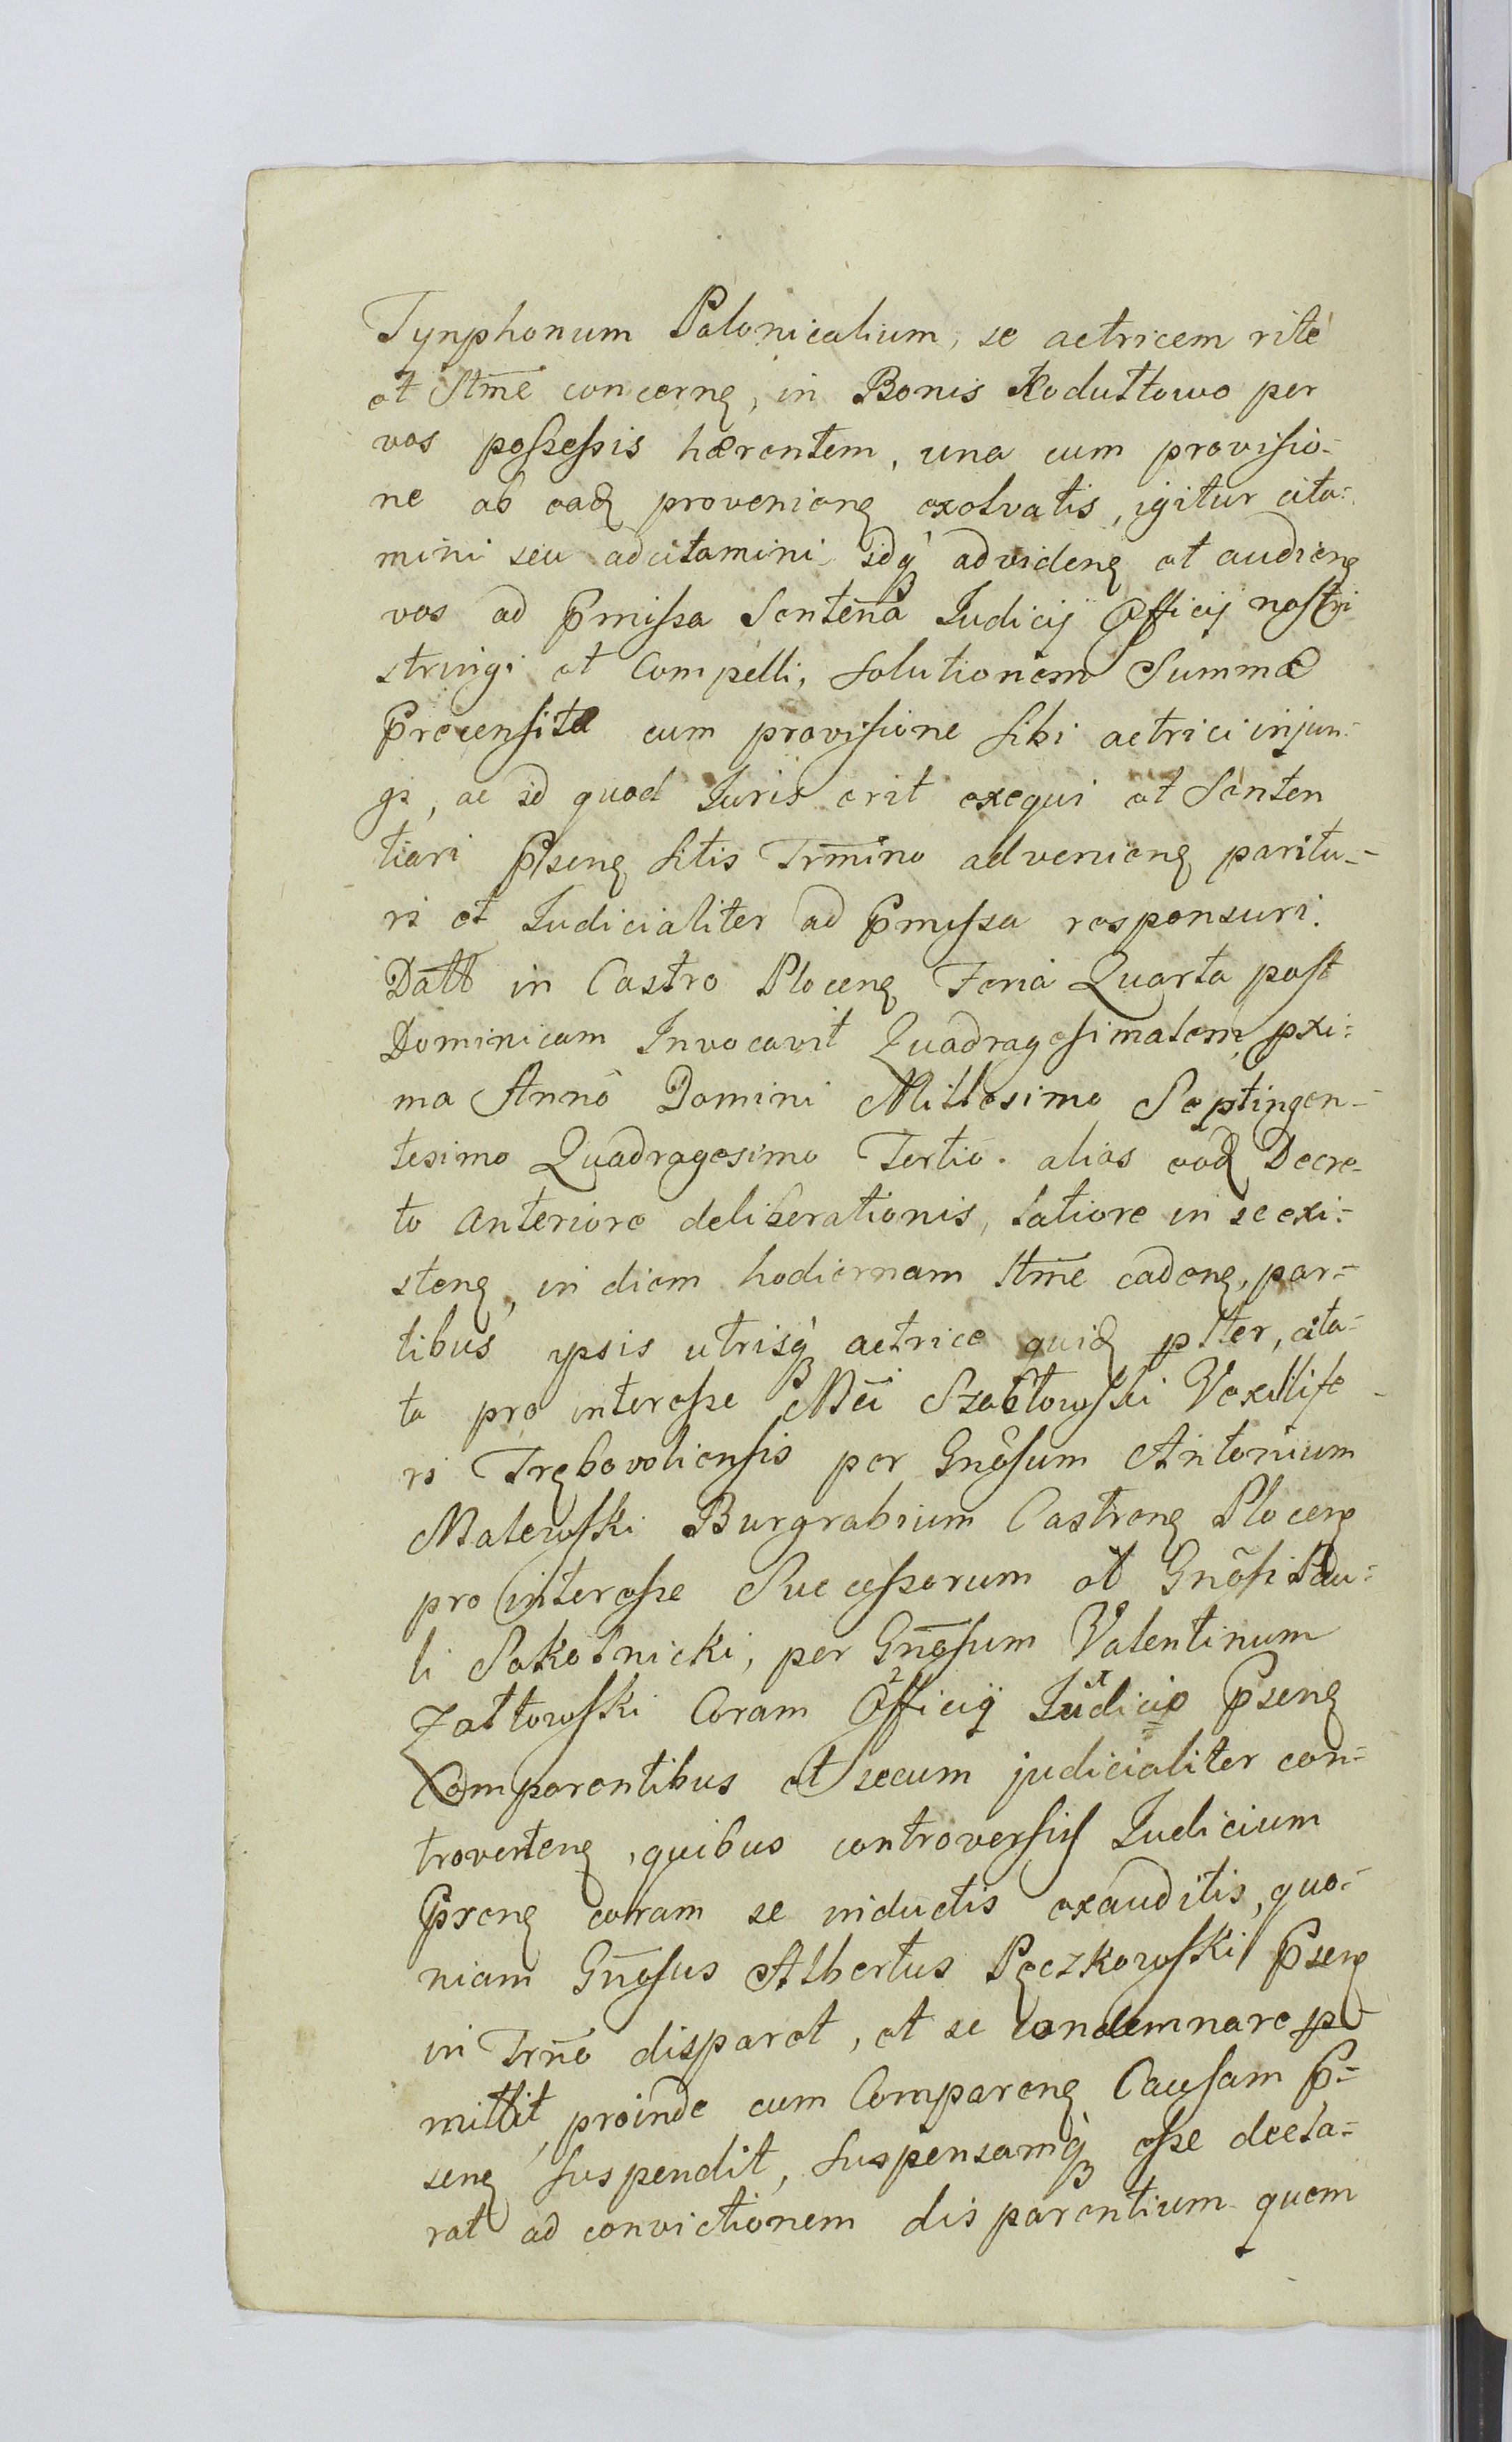 Tynphonum Polonicalium, se actricem ritè
et Ittme concerng, in Bonis Koduttowo per
vos possessis hærentem, una cum provisio-
ne ab eadg provenieng exolvatis, igitur cita-
mini seu adcitamini idq̀ ad videng et audieng
vos ad Pmissa Sentena Judicij Officij nostri
stringi et Compelli, solutionem Summæ
Precensitæ cum provisione sibi actrici injun-
gi, ac id quod Juris erit exequi et Senten
tiari Psseng sitis Trmino advenieng paritu-
ri et Judicialiter ad Pmissa responsuri.
Datt in Castro Ploceng Feria Quarta post
Dominicam Invocavit Quadragesimalem pxi-
ma Annô Domini Millesimo Septingen-
tesimo Quadragesimo Tertio. alias eodg Decre-
to anteriore deliberationis, latiore in se exi-
steng, in diem hodiernam Ittme cadeng, par-
tibus ypsis utrisq̀ actrice quidg plter, cita-
ta pro interesse Mci Szołtowski Vexillife
ri Trębovoliensis per Gnôsum Antonium
Malewski Burgrabium Castreng Ploceng
pro interesse Successorum et Gnôsi Pau-
li Sokolnicki, per Gnôsum Valentinum
Załtowski Coram Officij Judicio Pseng
Comparentibus et secum judicialiter con-
troverteng, quibus controversijs Judicium
Pseng coram se inductis exauditis, quo-
niam Gnôsus Albertus Pęczkowski Pseng
in Trno disparet, et se condemnare p-
mittit, proinde cum Compareng Causam P-
seng suspendit, suspensamq̀ esse decla-
rat ad convictionem disparentium quem